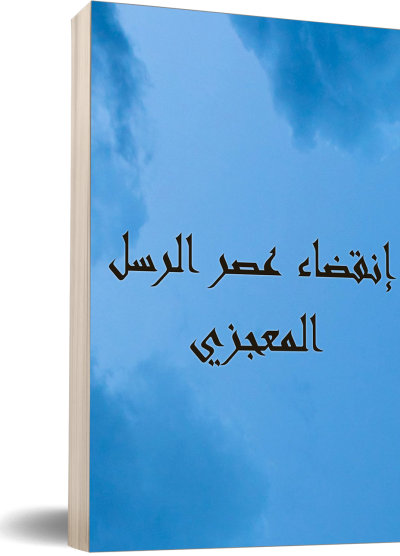 إنقضاء عصر الرسل
المعجزي